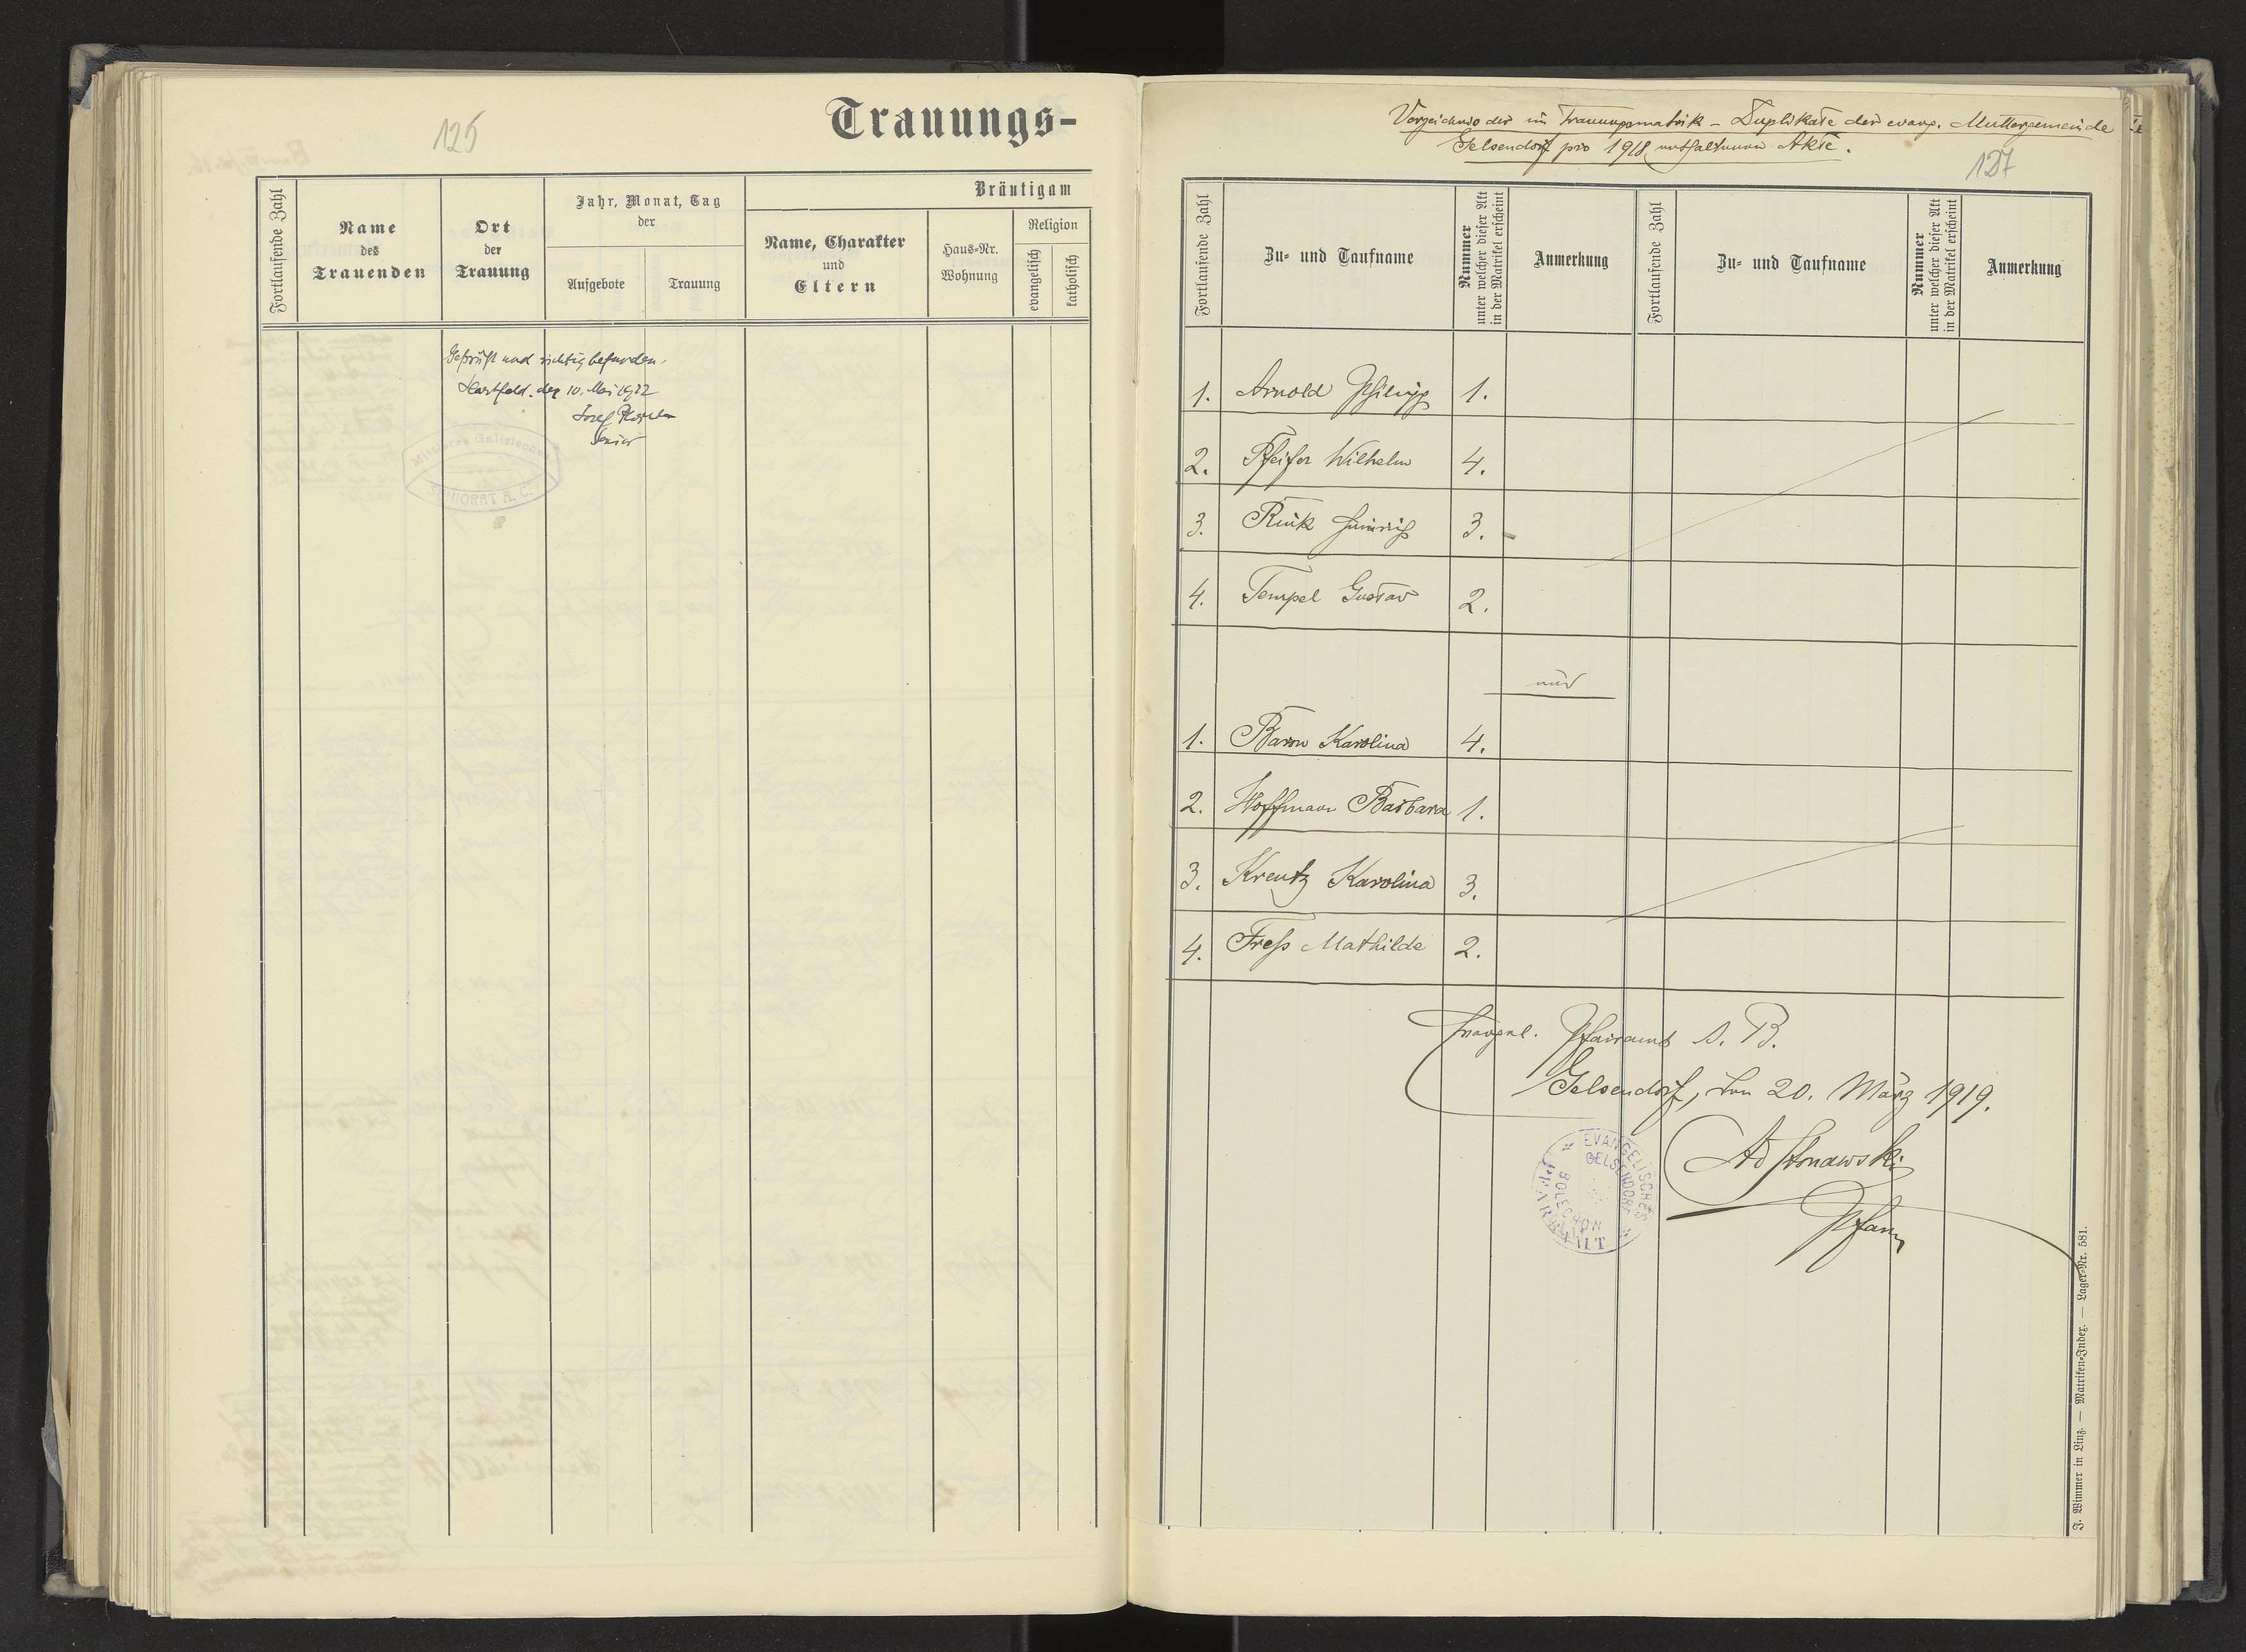 125
Trauungs-
Fortlaufende Zahl
Name
des
Trauenden
Ort
der
Trauung
Jahr, Monat, Tag
der
Aufgebote
Trauung
Bräutigam
Name, Charakter
und
Eltern
Haus-Nr.
Wohnung
Religion
evangelisch
katholisch
Geprüft und richtig befunden.
Hartfeld, den 10. Mai 1922
Josef
Senior
Mittleres Galizisches
SENIORAT A. C.
Verzeichnis der im Trauungsmatrik-Duplikate der evang. Muttergemeinde
Gelsendorf pro 1918 enthaltenen Akte.
127
Fortlaufende Zahl
Zu- und Taufname
Nummer
unter welcher dieser Akt
in der Matrikel erscheint
Anmerkung
Fortlaufende Zahl
Zu- und Taufname
Nummer
unter welcher dieser Akt
in der Matrikel erscheint
Anmerkung
1. Arnold Philipp 1.
2. Pfeifer Wilhelm 4.
3. Rink Heinrich 3.
4. Tempel Gustav 2.
und
1. Baron Karolina 4.
2. Hoffmann Barbara 1.
3. Kreutz Karolina 3.
4. Freß Mathilde 2.
Evangel. Pfarramt A. B.
Gelsendorf, den 20. März 1919.
Pfarrer
EVANGELISCHES
PFARRAMT
GELSENDORF
BOLECHOW
J. Wimmer in Linz. — Matriken-Index. — Lager-Nr. 581.